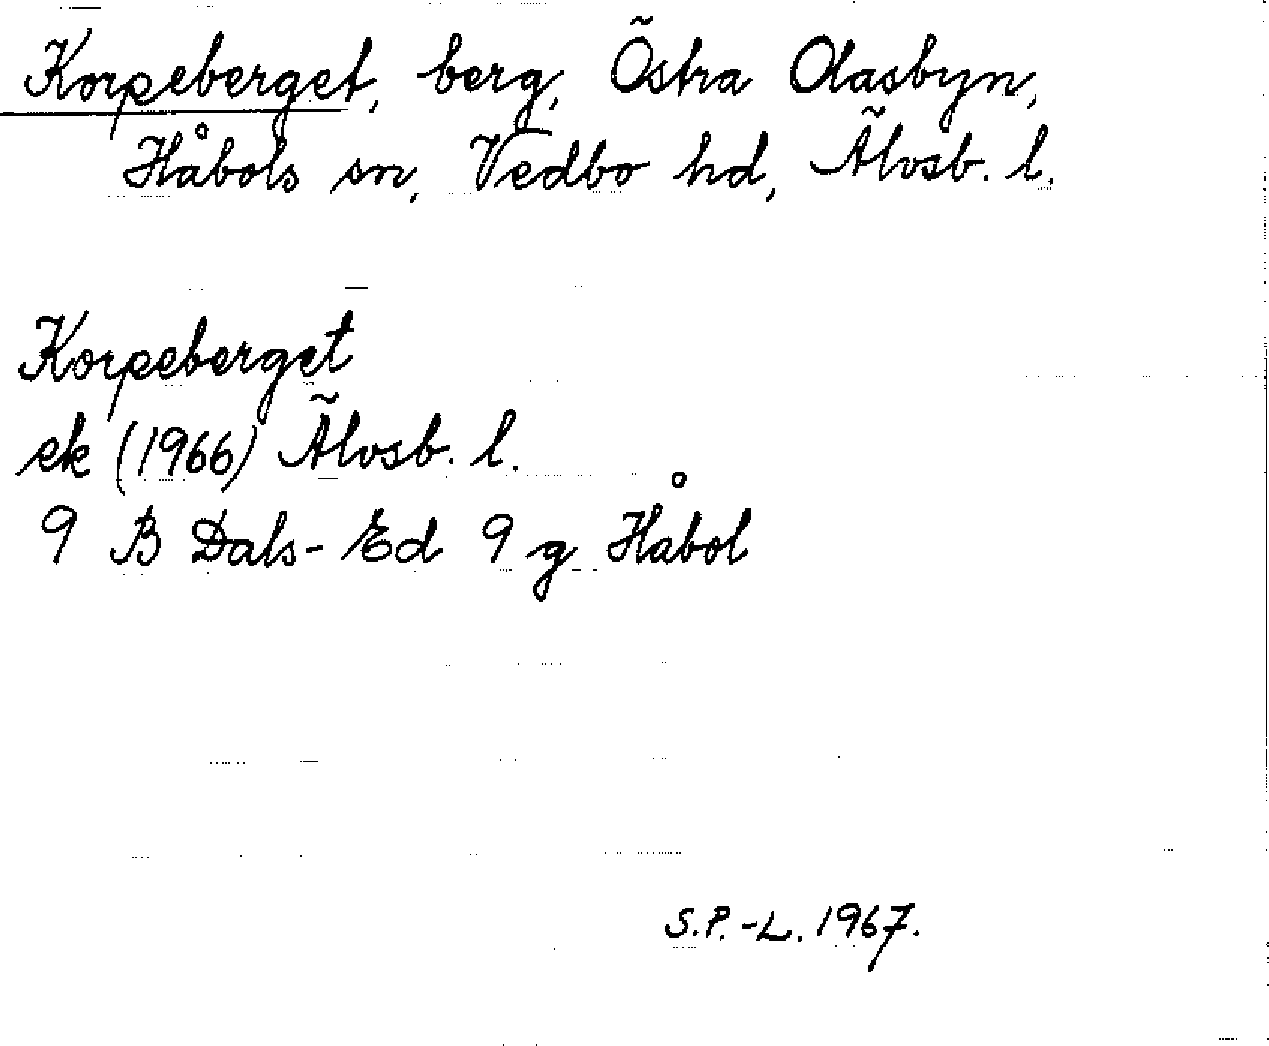 Korpeberget, berg, Östra Olasbyn,
Håbols sn, Vedbo hd, Älvsb. l.
Korpeberget
ek (1966) Älvsb. l.
9 B Dals-Ed 9 g Håbol
S.P.-L. 1967.